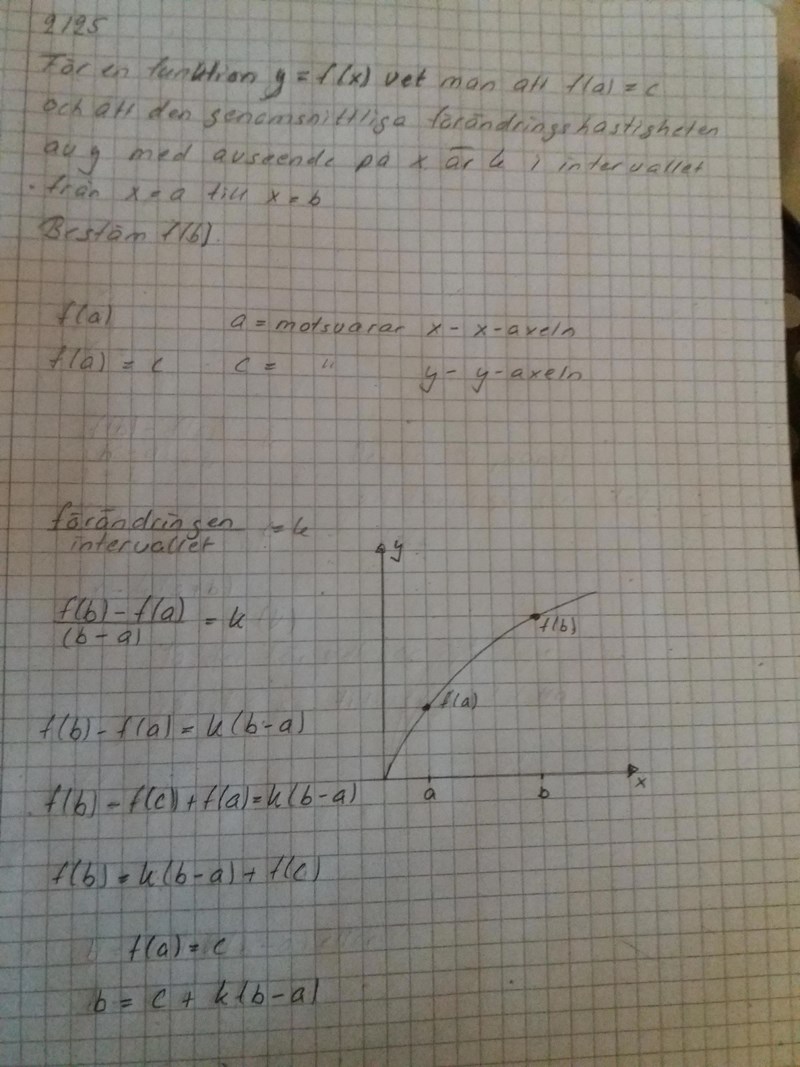 2125
För en funktion y = f(x) vet man att f(a) = c
och att den genomsnittliga förändringshastigheten
av y med avseende på x är k i intervallet
från x = a till x = b
Bestäm f(b).
f(a) a = motsvarar x - x-axeln
f(a) = c c = " y - y-axeln
förändringen
intervallet
= k
f(b) - f(a)
(b - a)
= k
f(b) - f(a) = k(b-a)
f(b) - f(c) + f(a) = k(b-a)
f(b) = k(b-a) + f(c)
f(a) = c
b = c + k(b-a)
y
f(b)
f(a)
a b x